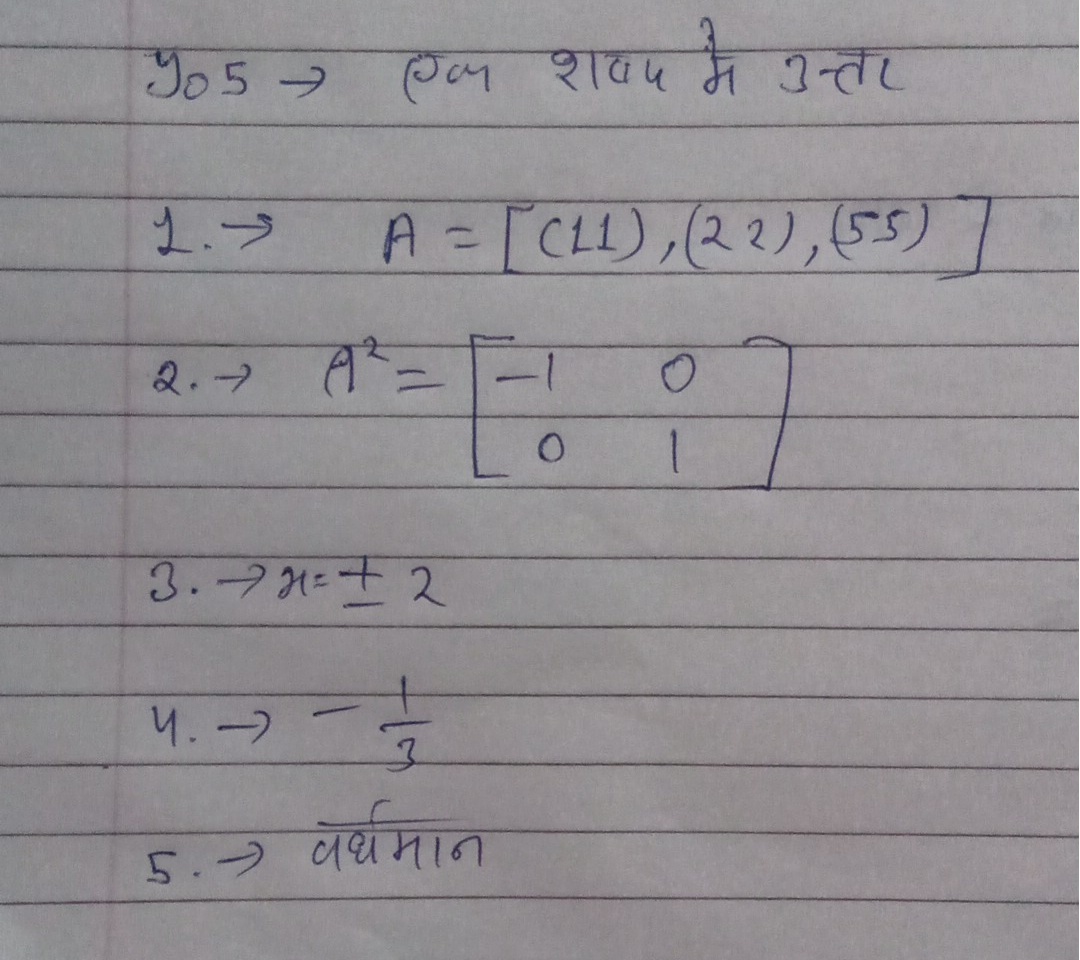 प्र०5 → एक शब्द में उत्तर
1. → A = [(11), (22), (55)]
2. → A² = [-1 0
0 1]
3. → x = ± 2
4. → - 1/3
5. → वर्धमान